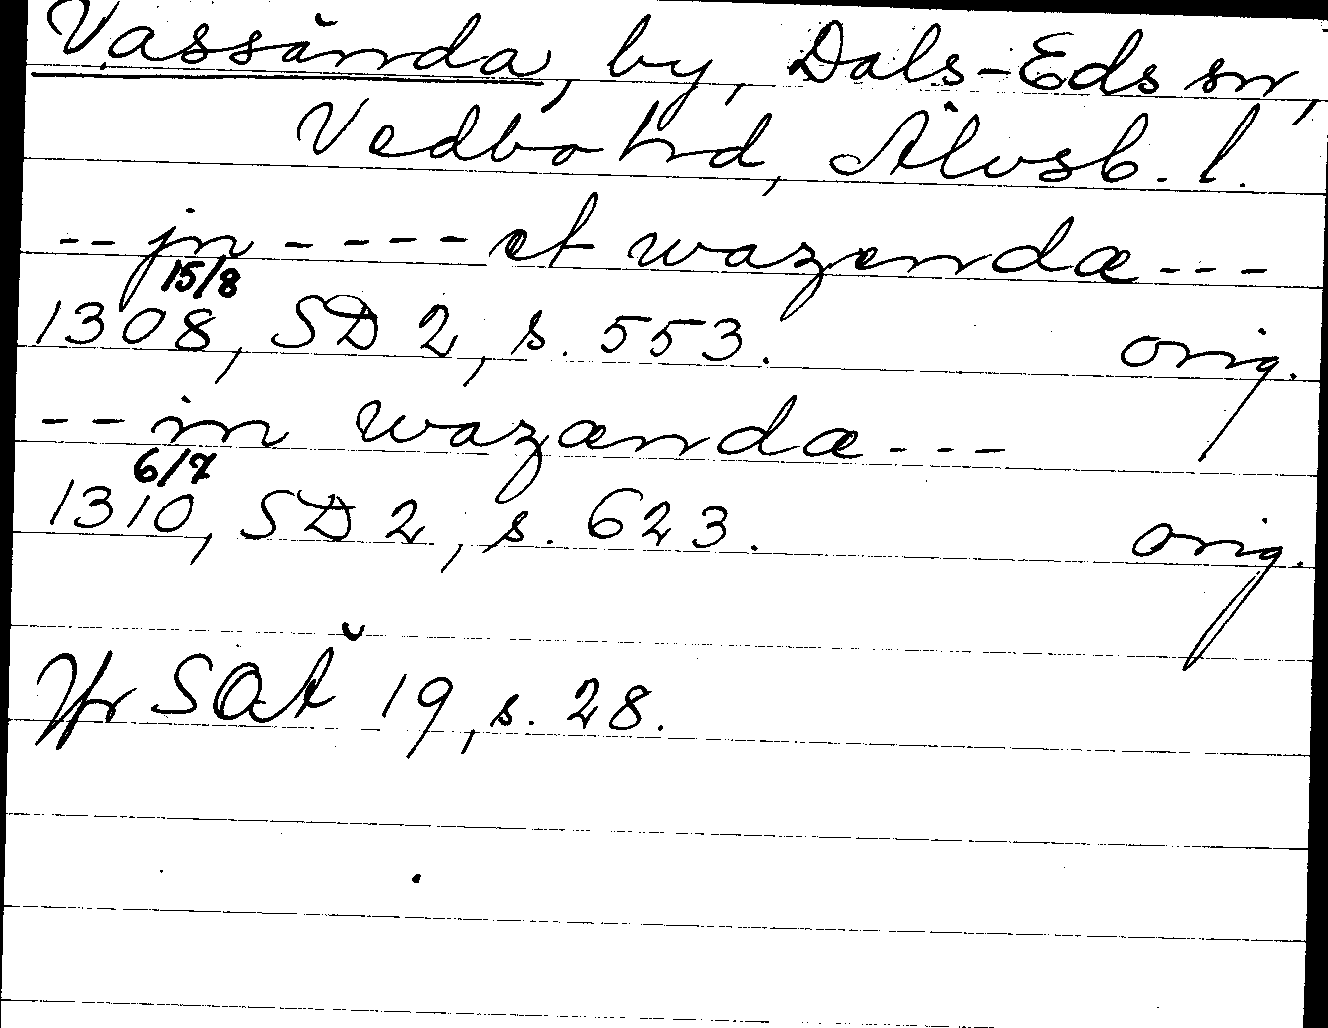 Vassända, by, Dals-Eds sn,
Vedbo hd, Älvsb. l.
-- jn - - - - et wazendæ - - -
15/8
1308, SD 2, s. 553. orig.
-- in wazændæ - - -
6/7
1310, SD 2, s. 623. orig.
Jfr SOÄ 19, s. 28.